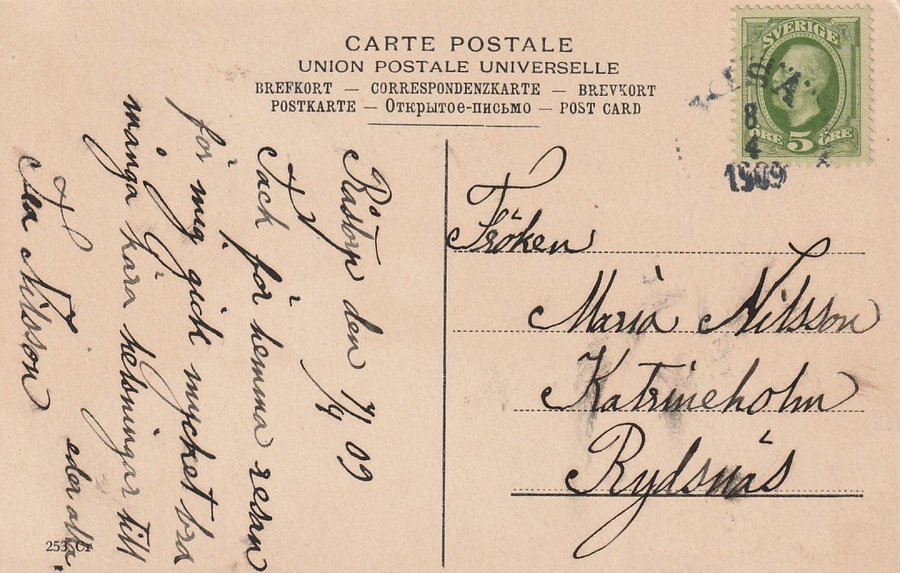 CARTE POSTALE
UNION POSTALE UNIVERSELLE
BREFKORT — CORRESPONDENZKARTE — BREVKORT
POSTKARTE — Открытое-письмо — POST CARD
SVERIGE
ÖRE 5 ÖRE
8
4
1909
Råstorp den 7/4 09
Tack för hemma resan
för mig gick mycket bra
många kära helsningar till
eder alla
Ida Nilsson
Fröken
Maria Nilsson
Katrineholm
Rydsnäs
253 C1